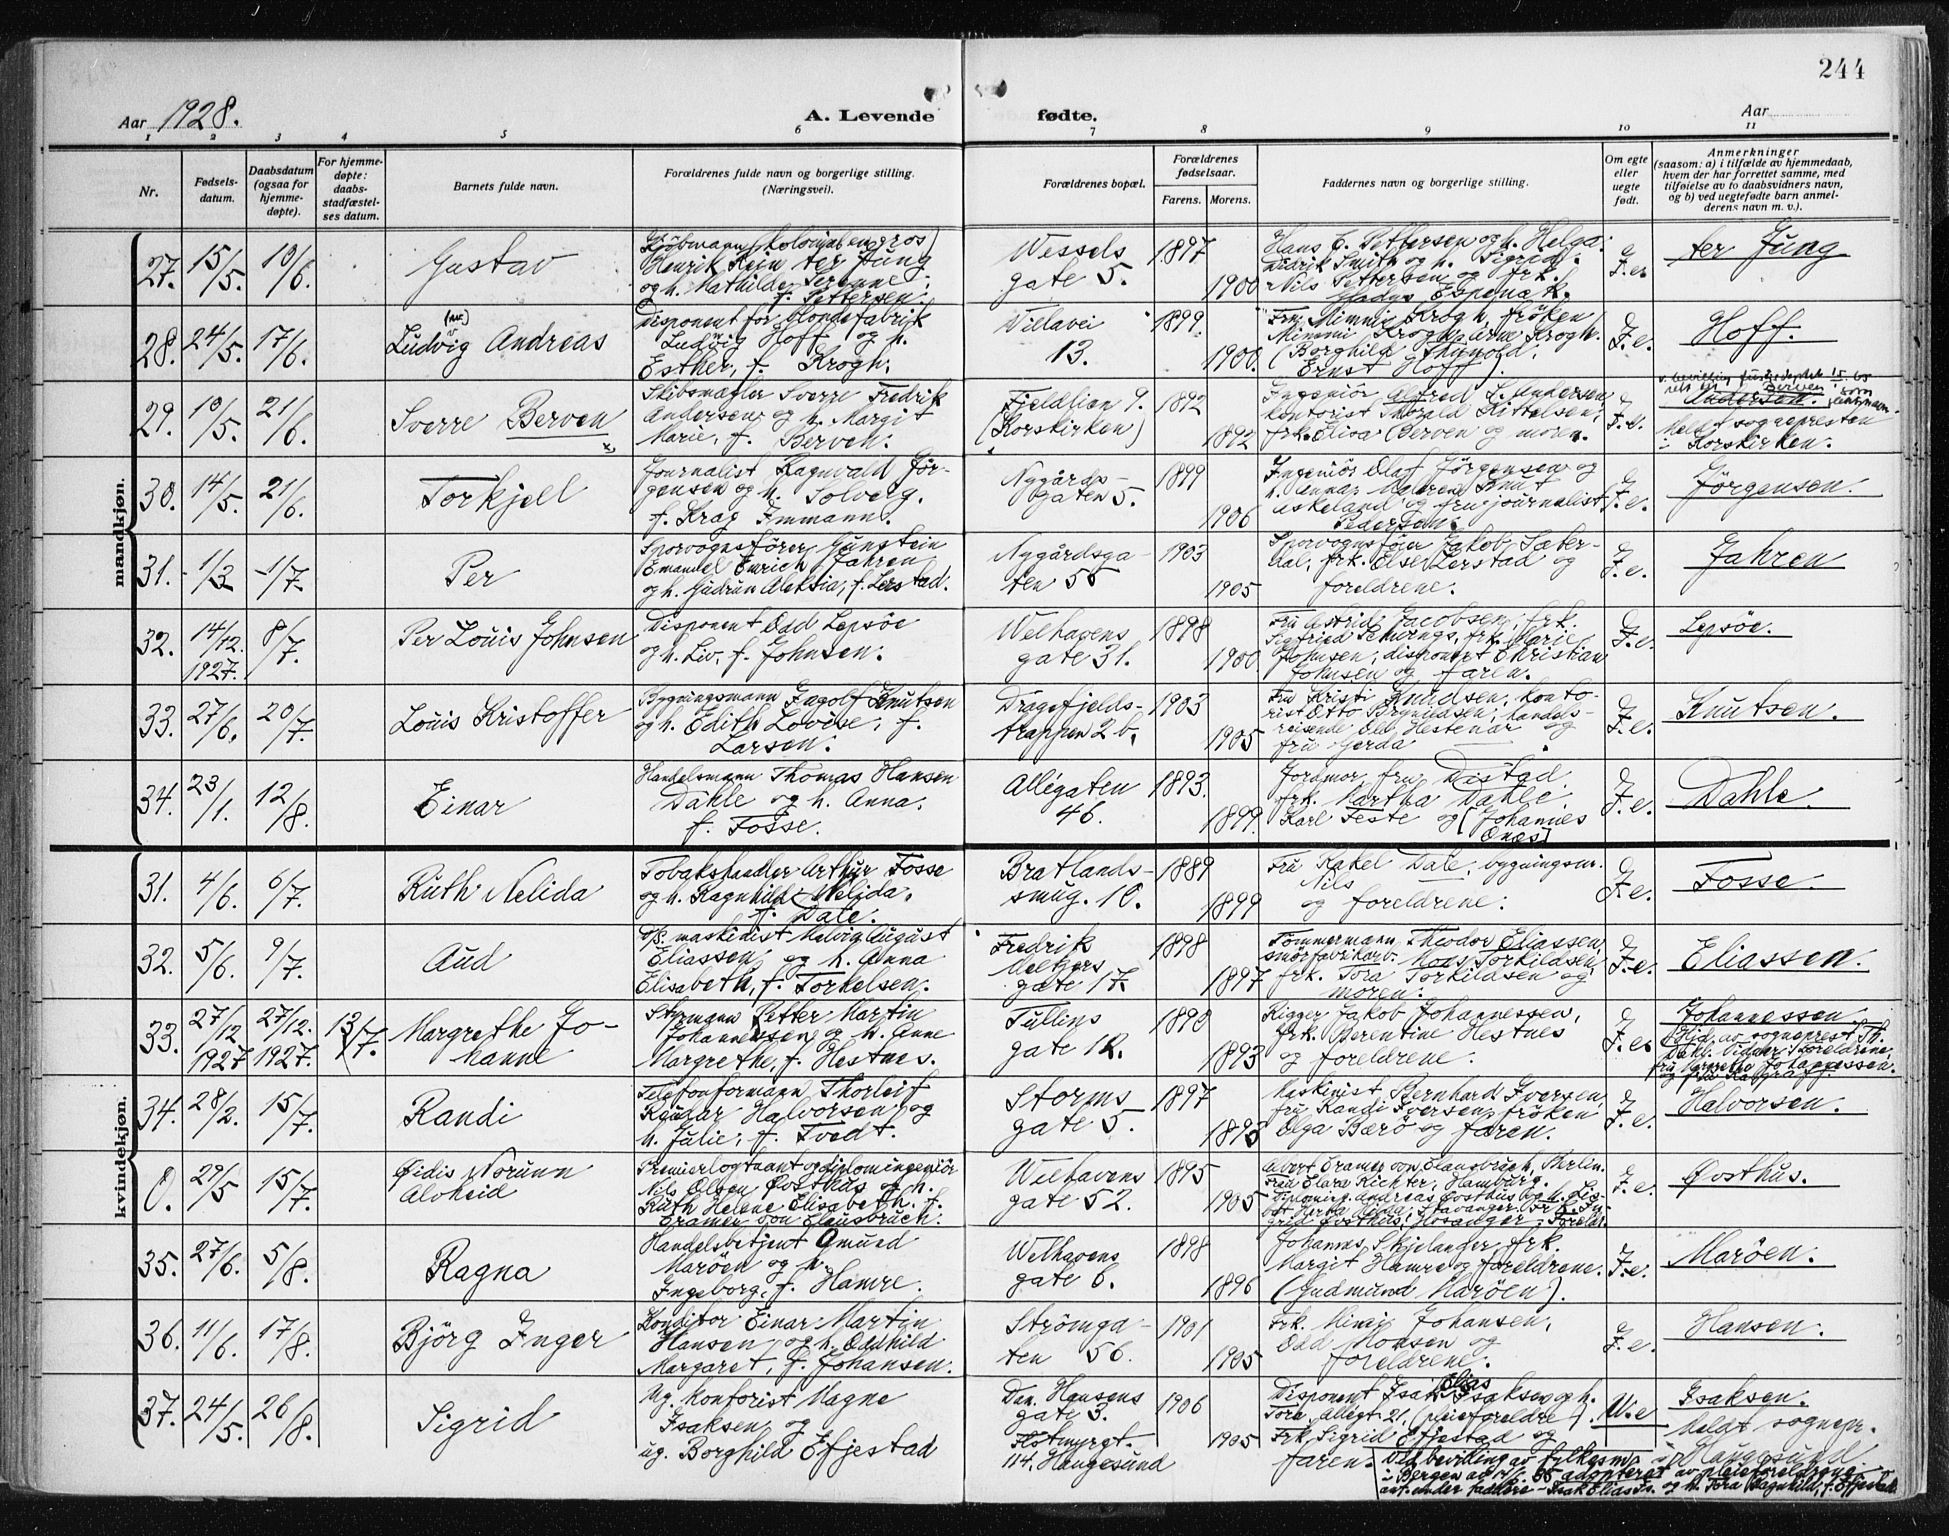 244
Aar 1928.
A. Levende
fødte.
Aar
1 2 3 4 5 6 7 8 9 10 11
Nr.
Fødsels-
datum.
Daabsdatum
(ogsaa for
hjemme-
døpte).
For hjemme-
døpte:
daabs-
stadfæstel-
ses datum.
Barnets fulde navn.
Forældrenes fulde navn og borgerlige stilling.
(Næringsvei).
Forældrenes bopæl.
Forældrenes
fødselsaar.
Farens. Morens.
Faddernes navn og borgerlige stilling.
Om egte
eller
uegte
født.
Anmerkninger
(saasom: a) i tilfælde av hjemmedaab,
hvem der har forrettet samme, med
tilføielse av to daabsvidners navn,
og b) ved uegtefødte barn anmel-
derens navn m. v.).
mandkjøn.
27. 15/5. 10/6. Gustav
Kjøbmann (kolonial en gros)
Henrik Rein ter Jung
og h. Mathilde Serenne,
f. Pettersen.
Wessels
gate 5.
1897
1900
Hans C. Pettersen og h. Helga.
Didrik Smith og h. Sigrid.
Nils Pettersen og frk.
Gladys Espenæk.
ter Jung
28. 24/5. 17/6. Ludvig Andreas
Disponent for blondefabrik
Ludvig Hoff og h.
Esther, f. Krogh.
Villavei
13.
1899.
1900.
Fru Mimmi Krogh, frøken
Mimmi Krogh, Arne Krogh.
(Borghild Thunold.
Ernst Hoff).
F.e.
Hoff.
29. 10/5. 21/6. Sverre Berven
Skibsmægler Sverre Fredrik
Andersen og h. Margit
Marie, f. Berven.
Fjeldlien 9.
(Korskirken)
1892
1892
Ingeniör Alfred S. Andersen,
kontorist Thorald Kittelsen,
frk. Elisa Berven og moren.
F.e.
Berven som
Andersen.
Meldt sognepresten
i Korskirken.
30. 14/5. 21/6. Torkjell
Journalist Ragnvald Jör-
gensen og h. Solveig.
f. Krag Immann.
Nygårds-
gaten 5.
1899
1906
Ingeniör Olaf Jörgensen og
h. Annar, Knut
Askeland og fru, journalist
Pedersen.
F.e.
Jörgensen.
31. 1/3 1/7. Per
Sporvognsförer Gunstein
Emanuel Emrich Jahren
og h. Gudrun Aleksia, f. Lerstad.
Nygårdsga-
ten 55
1903
1905
Sporvognsföier Jakob Sæter-
dal, frk. Else Lerstad og
foreldrene.
F.e.
Jahren
32. 14/12. 1927. 8/7. Per Louis Johnsen
Disponent Odd Lepsöe
og h. Liv, f. Johnsen.
Welhavens
gate 31.
1898
1900
Fru Astrid Jacobsen, frk.
Sigfried frk. Marie
Johnsen, disponent Christian
Johnsen og faren.
F.e.
Lepsöe.
33. 27/6. 20/7. Louis Kristoffer
Bygningsmann Fagolf Knutsen
og h. Edith Lovise, f.
Larsen.
Dragefjelds-
trappen 2 b.
1903
1905
Fru Kristi Knudsen, konto-
rist Otto Brynildsen, handels-
reisende Hestenar og
fru Gerda
F.e.
Knutsen.
34. 23/1. 12/8. Einar
Handelsmann Thomas Hansen
Dahle og h. Anna.
f. Fosse.
Allégaten
46.
1893.
1899.
Jordmor, fru Distad
frk. Martha Dahle.
Karl Feste og [Johannes
Onæs]
F.e.
Dahle.
kvindekjøn.
31. 4/6. 6/7. Ruth Nelida
Tobakshandler Arthur Fosse
og h. Ragnhild Nelida.
f. Dale.
Bratlands-
smug. 10.
1889
1899
Fru Rakel Dale, bygningsm.
Nils
og foreldrene.
F.e.
Fosse.
32. 5/6. 9/7. Aud
maskinist Melvig August
Eliassen og h. Anna
Elisabeth, f. Torkelsen.
Fredrik
Meltzers
gate 17.
1898
1897
Tömmermann Theodor Eliassen,
smörfabrikarb. Mons Torkildsen,
frk. Tora Torkildsen og
moren.
F.e.
Eliassen.
33. 27/12 1927 27/12. 1927. 13/7. Margrethe Jo-
hanne
Styrmann Petter Martin
Johannessen og h. Anne
Margrethe, f. Hestnes.
Tullins
gate 12.
1890
1893
Rigger Jakob Johannessen,
frk. Berentine Hestnes
og foreldrene.
F.e.
Johannessen
Hjd. av sogneprest Th.
Dahl. Vidner: foreldrene,
fru Margrethe Johannessen.
34. 28/2. 15/7. Randi
Telefonformann Thorleif
Ragnar Halvorsen og
h. Julie, f. Tvedt.
Storms
gate 5.
1897
1893
Maskinist Bernhard Iversen,
fru Randi Iversen, fröken
Olga Bærö og faren.
F.e.
Halvorsen.
0. 29/5 15/7. Øidis Norunn
Alvheid
Premierlöytnant og diplomingeniör
Nils Olsen Øvsthus og h.
Ruth Helene Elisabeth. f.
Cramer von Clausbruch.
Welhavens
gate 52.
1895
1905
Albert Cramer von Clausbruch, Berlin.
Fru Clara Richter, Hamburg.
Diploming. Andreas Øvsthus og h. Lis-
bet Herda Helda, Stavanger. Frk. In-
grid Øvsthus, Hosanger. Foreldr.
F.e.
Øvsthus.
35. 27/6. 5/8. Ragna
Handelsbetjent Omund
Maröen og h.
Ingeborg, f. Hamre.
Welhavens
gate 6.
1898
1896
Johannes Skjelanger, frk.
Margit Hamre og foreldrene.
(Gudmund Maröen).
F.e.
Maröen.
36. 11/6. 17/8. Björg Inger
Konditor Einar Martin
Hansen og h. Oddhild
Margaret, f. Johansen.
Strömga-
ten 56.
1901
1905
Frk. Minni Johansen,
Odd Monsen og
foreldrene.
F.e.
Hansen.
37. 24/5. 26/8. Sigrid
Ug. kontorist Magne
Isaksen og
ug. Borghild Efjestad
Dan. Hansens
gate 3.
Flotmyrgt.
114. Haugesund
1906
1905
Disponent Isak Elias Isaksen og h.
Tora, Allégt. 21. (pleieforeldre).
Frk. Sigrid Efjestad og
faren.
U.e
Isaksen.
Meldt sognepr.
i Haugesund.
Ved bevilling av fylkesm.
i Bergen av adoptert av pleieforeldrene
anf. under faddere - Isak Elias Is. og h. Tora Ragnhild, f. Efjestad.